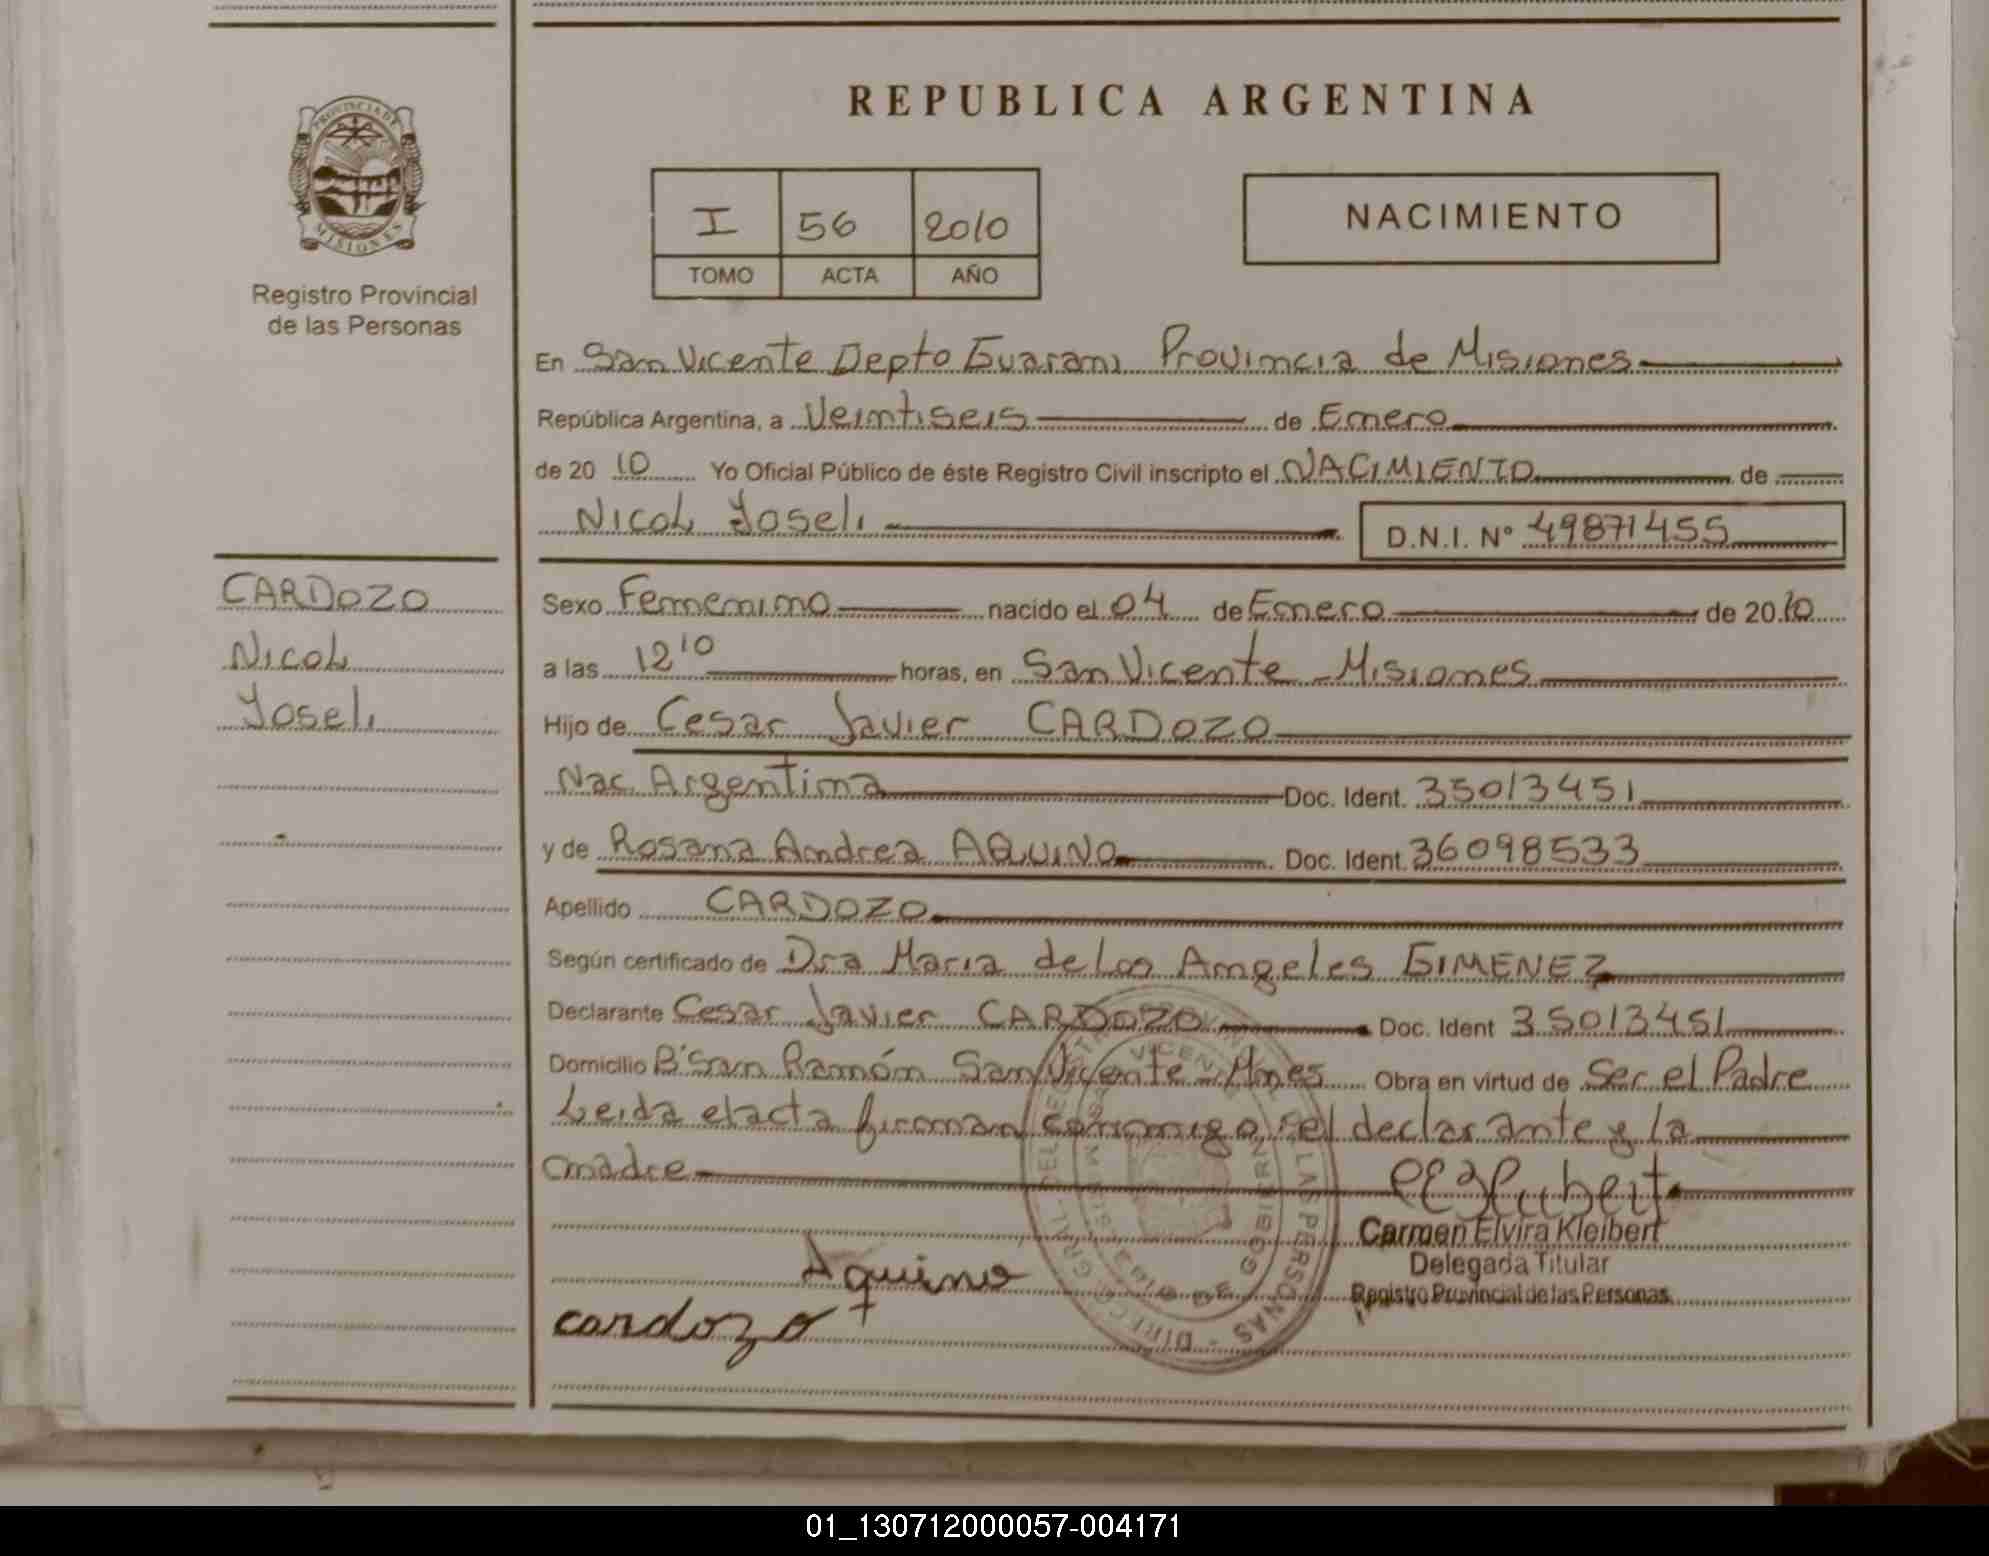 REPUBLICA ARGENTINA
PROVINCIA DE MISIONES
Registro Provincial
de las Personas
I 56 2010
TOMO ACTA AÑO
NACIMIENTO
En San Vicente Depto Guarani Provincia de Misiones
República Argentina, a Veintiseis de Enero
de 20 10 Yo Oficial Público de éste Registro Civil inscripto el NACIMIENTO de
Nicol Yoseli D.N.I. Nº 49871455
CARDOZO
Nicol
Yoseli
Sexo Femenino nacido el 04 de Enero de 20 10
a las 12 10 horas, en San Vicente - Misiones
Hijo de Cesar Javier CARDOZO
Nac. Argentina Doc. Ident. 35013451
y de Rosana Andrea AQUINO Doc. Ident. 36098533
Apellido CARDOZO
Según certificado de Dra Maria de Los Angeles GIMENEZ
Declarante Cesar Javier CARDOZO Doc. Ident 35013451
Domicilio Bº San Ramón San Vicente - Mnes Obra en virtud de Ser el Padre
Leida el acta firman conmigo, el declarante y la
madre
Carmen Elvira Kleibert
Delegada Titular
Registro Provincial de las Personas
Aquino
cardozo
01_130712000057-004171